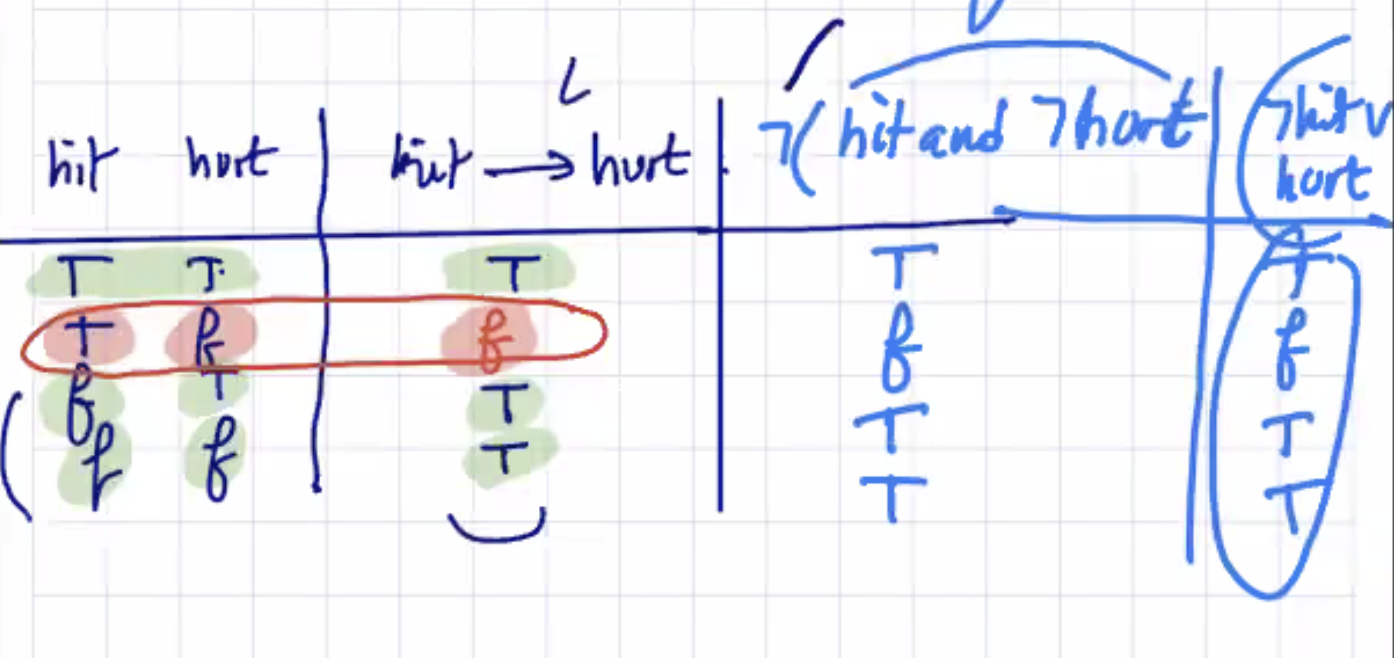 hit hurt hit → hurt ¬(hit and ¬hurt ¬hit ∨
hurt
T T T T T
T f f f f
f T T T T
f f T T T